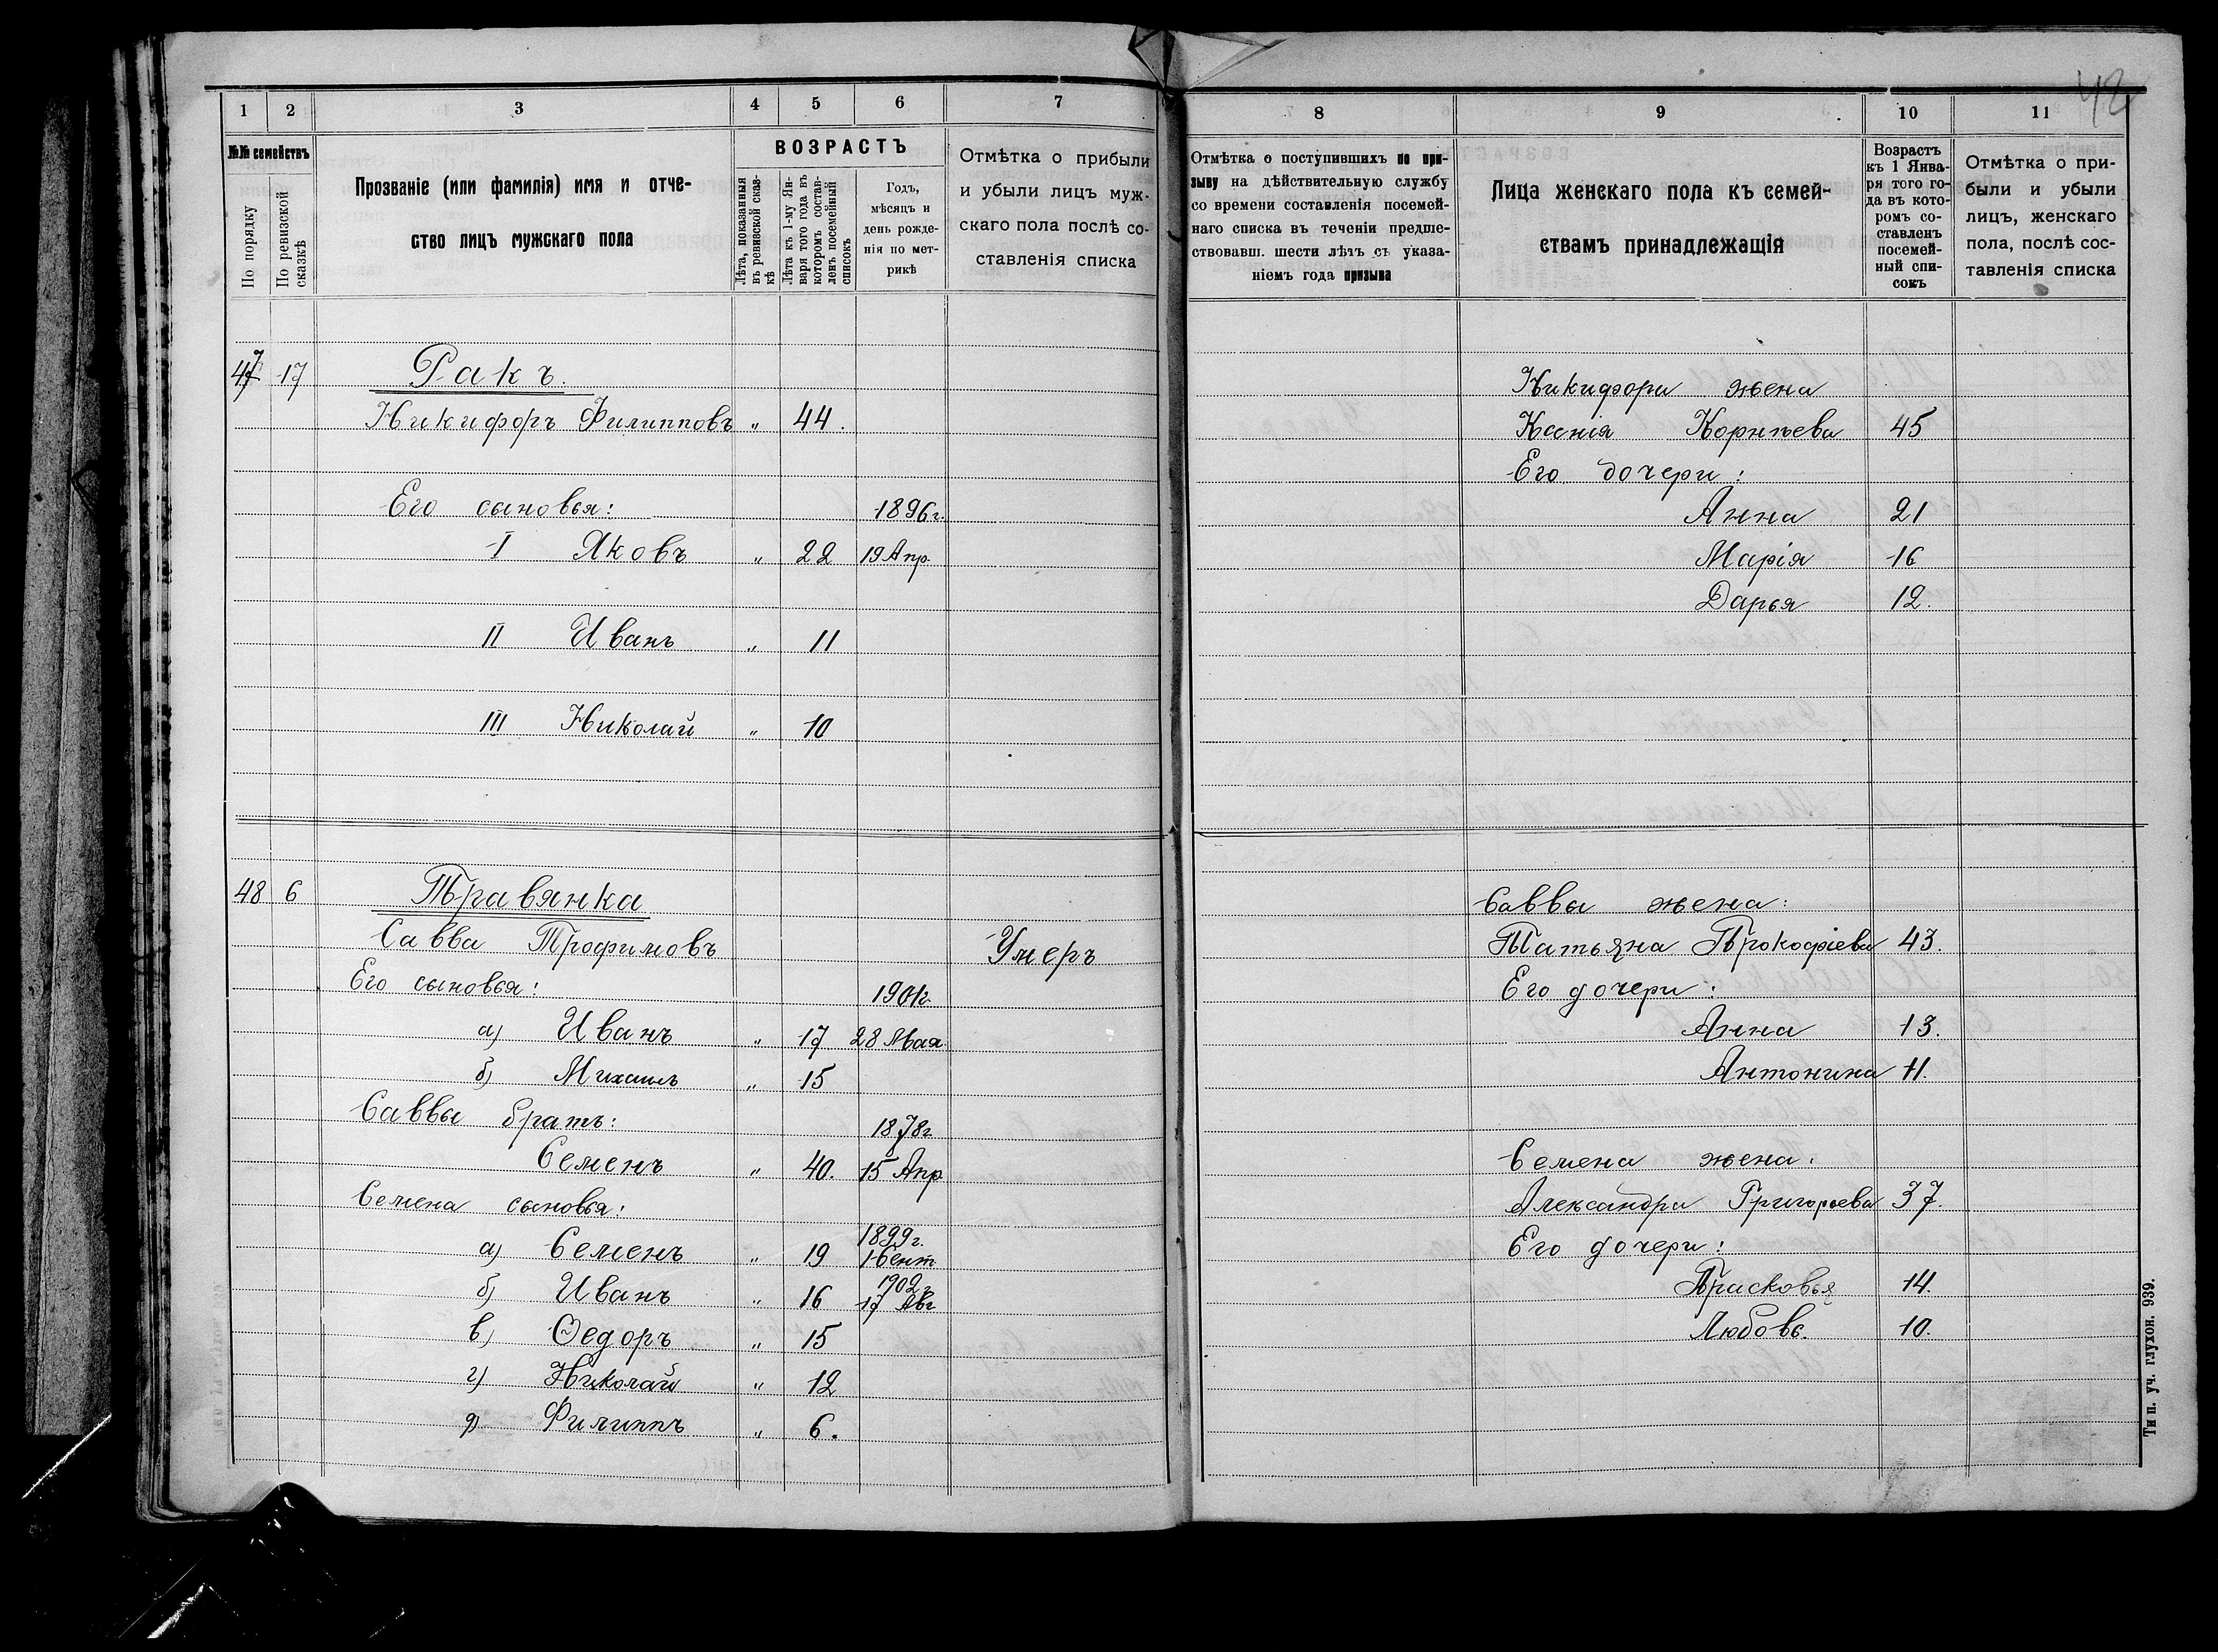 42
1 2 3 4 5 6 7
№№ семействъ
По порядку
По ревизской сказкѣ
Прозваніе (или фамилія) имя и отче-
ство лицъ мужскаго пола
ВОЗРАСТЪ
Лѣта, показанныя
въ ревизской сказ-
кѣ
Лѣта къ 1-му Ян-
варя того года въ
которомъ состав-
ленъ посемейный
списокъ
Годъ,
мѣсяцъ и
день рожде-
нія по мет-
рикѣ
Отмѣтка о прибыли
и убыли лицъ муж-
скаго пола послѣ со-
ставленія списка
47 17 Ракъ.
Никифоръ Филипповъ „ 44.
Его сыновья: 1896г.
I Яковъ „ 22 19 Апр.
II Иванъ „ 11
III Николай „ 10
48 6 Травянка
Савва Трофимовъ Умеръ
Его сыновья: 1901г.
а) Иванъ „ 17 28 Мая
б) Михаилъ „ 15
Саввы братъ: 1878г
Семенъ „ 40. 15 Апр
Семена сыновья:
1899г.
а) Семенъ „ 19 1 Сент
1902г
б) Иванъ „ 16 17 Авг
в) Ѳедоръ „ 15
г) Николай „ 12
д) Филиппъ „ 6.
8 9 10 11
Отмѣтка о поступившихъ по при-
зыву на дѣйствительную службу
со времени составленія посемей-
наго списка въ теченіи предше-
ствовавш. шести лѣтъ съ указа-
ніемъ года призыва
Лица женскаго пола къ семей-
ствамъ принадлежащія
Возрастъ
къ 1 Янва-
ря того го-
да въ кото-
ромъ со-
ставленъ
посемей-
ный спи-
сокъ
Отмѣтка о при-
были и убыли
лицъ, женскаго
пола, послѣ сос-
тавленія списка
Никифора жена
Ксенія Корнѣева 45
Его дочери:
Анна 21
Марія 16
Дарья 12.
Саввы жена:
Татьяна Прокофіева 43.
Его дочери:
Анна 13.
Антонина 11.
Семена жена:
Александра Григорьева 37.
Его дочери:
Прасковья 14.
Любовь. 10.
Тип. уч. глухон. 939.